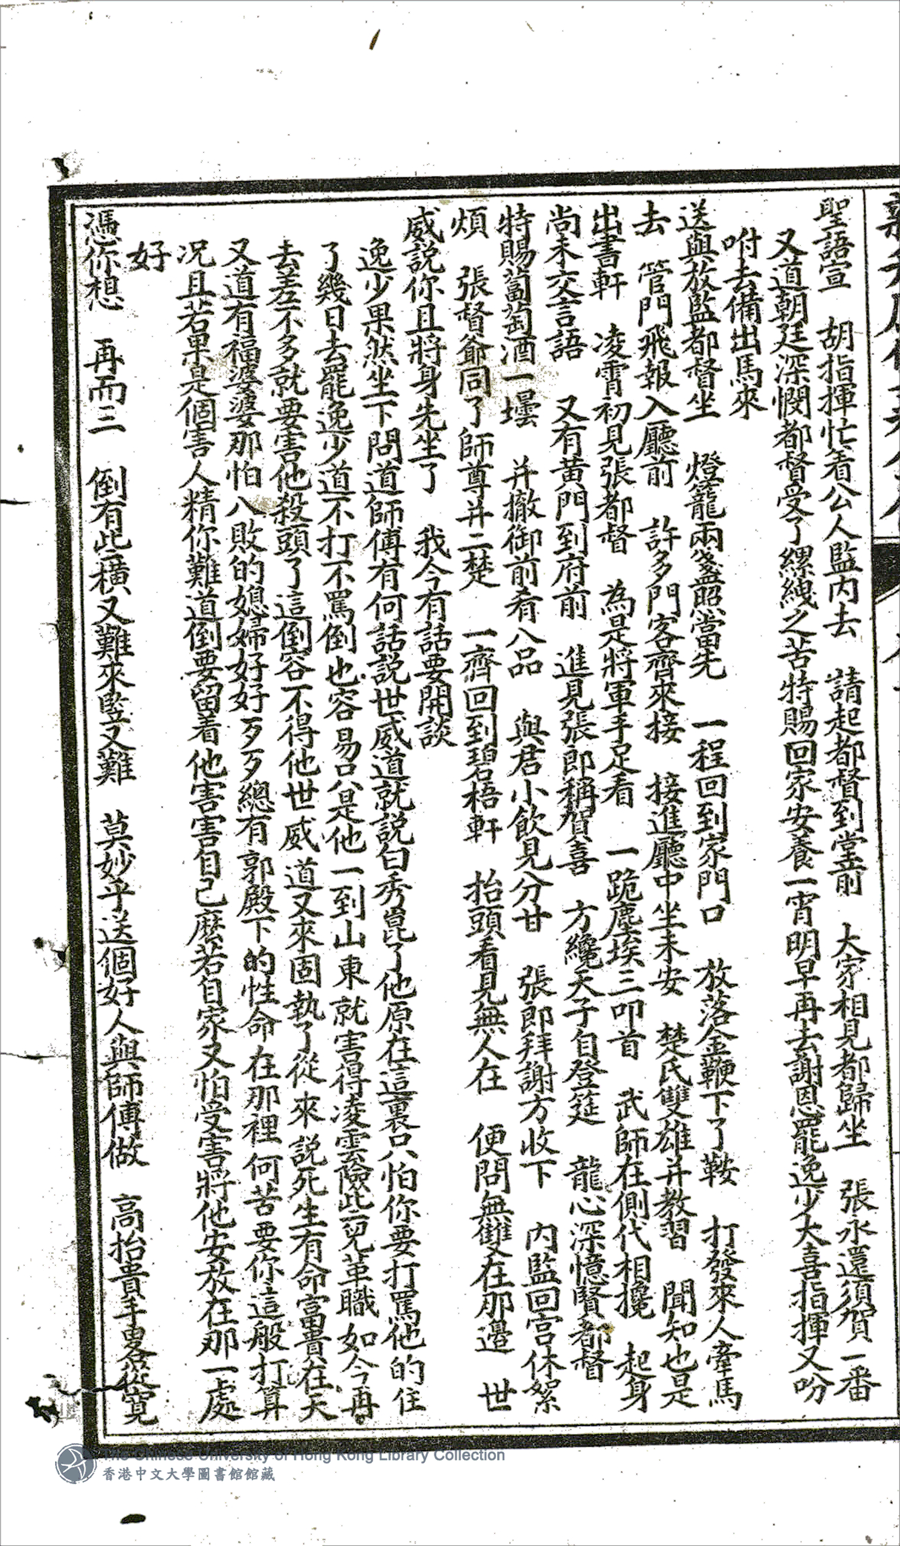 聖語宣　胡指揮忙看公人監內去　請起都督到堂前　大家相見都歸坐　張永還須賀一番
又道朝廷深憫都督受了縲絏之苦特賜回家安養一宵明早再去謝恩罷逸少大喜指揮又吩
咐去備出馬來
送與放監都督坐　燈籠兩盞照當先　一程回到家門口　放落金鞭下了鞍　打發來人牽馬
去　管門飛報入廳前　許多門客齊來接　接進廳中坐未安　楚氏雙雄并教習　聞知也是
出書軒　凌霄初見張都督　為是將軍手足看　一跪塵埃三叩首　武師在側代相攙　起身
尚未交言語　又有黃門到府前　進見張郎稱賀喜　方纔天子自登筵　龍心深憶賢都督
特賜蔔萄酒一壜　并撤御前肴八品　與君小飲見分甘　張郎拜謝方收下　內監回宮休絮
煩　張督爺同了師尊并二楚　一齊回到碧梧軒　抬頭看見無人在　便問無雙在那邊　世
威說你且將身先坐了　我今有話要開談
逸少果然坐下問道師傅有何話說世威道就說白秀崑了他原在這裏只怕你要打罵他的住
了幾日去罷逸少道不打不罵倒也容易只是他一到山東就害得凌雲險些兒革職如今再
去差不多就要害他殺頭了這倒容不得他世威道又來固執了從來說死生有命富貴在天
又道有福婆婆那怕八敗的媳婦好好歹歹總有郭殿下的性命在那裡何苦要你這般打算
況且若果是個害人精你難道倒要留着他害害自己麼若自家又怕受害將他安放在那一處
好
憑你想　再而三　倒有些橫又難來竪又難　莫妙乎送個好人與師傅做　高抬貴手畧從寬
The Chinese University of Hong Kong Library Collection
香港中文大學圖書館館藏